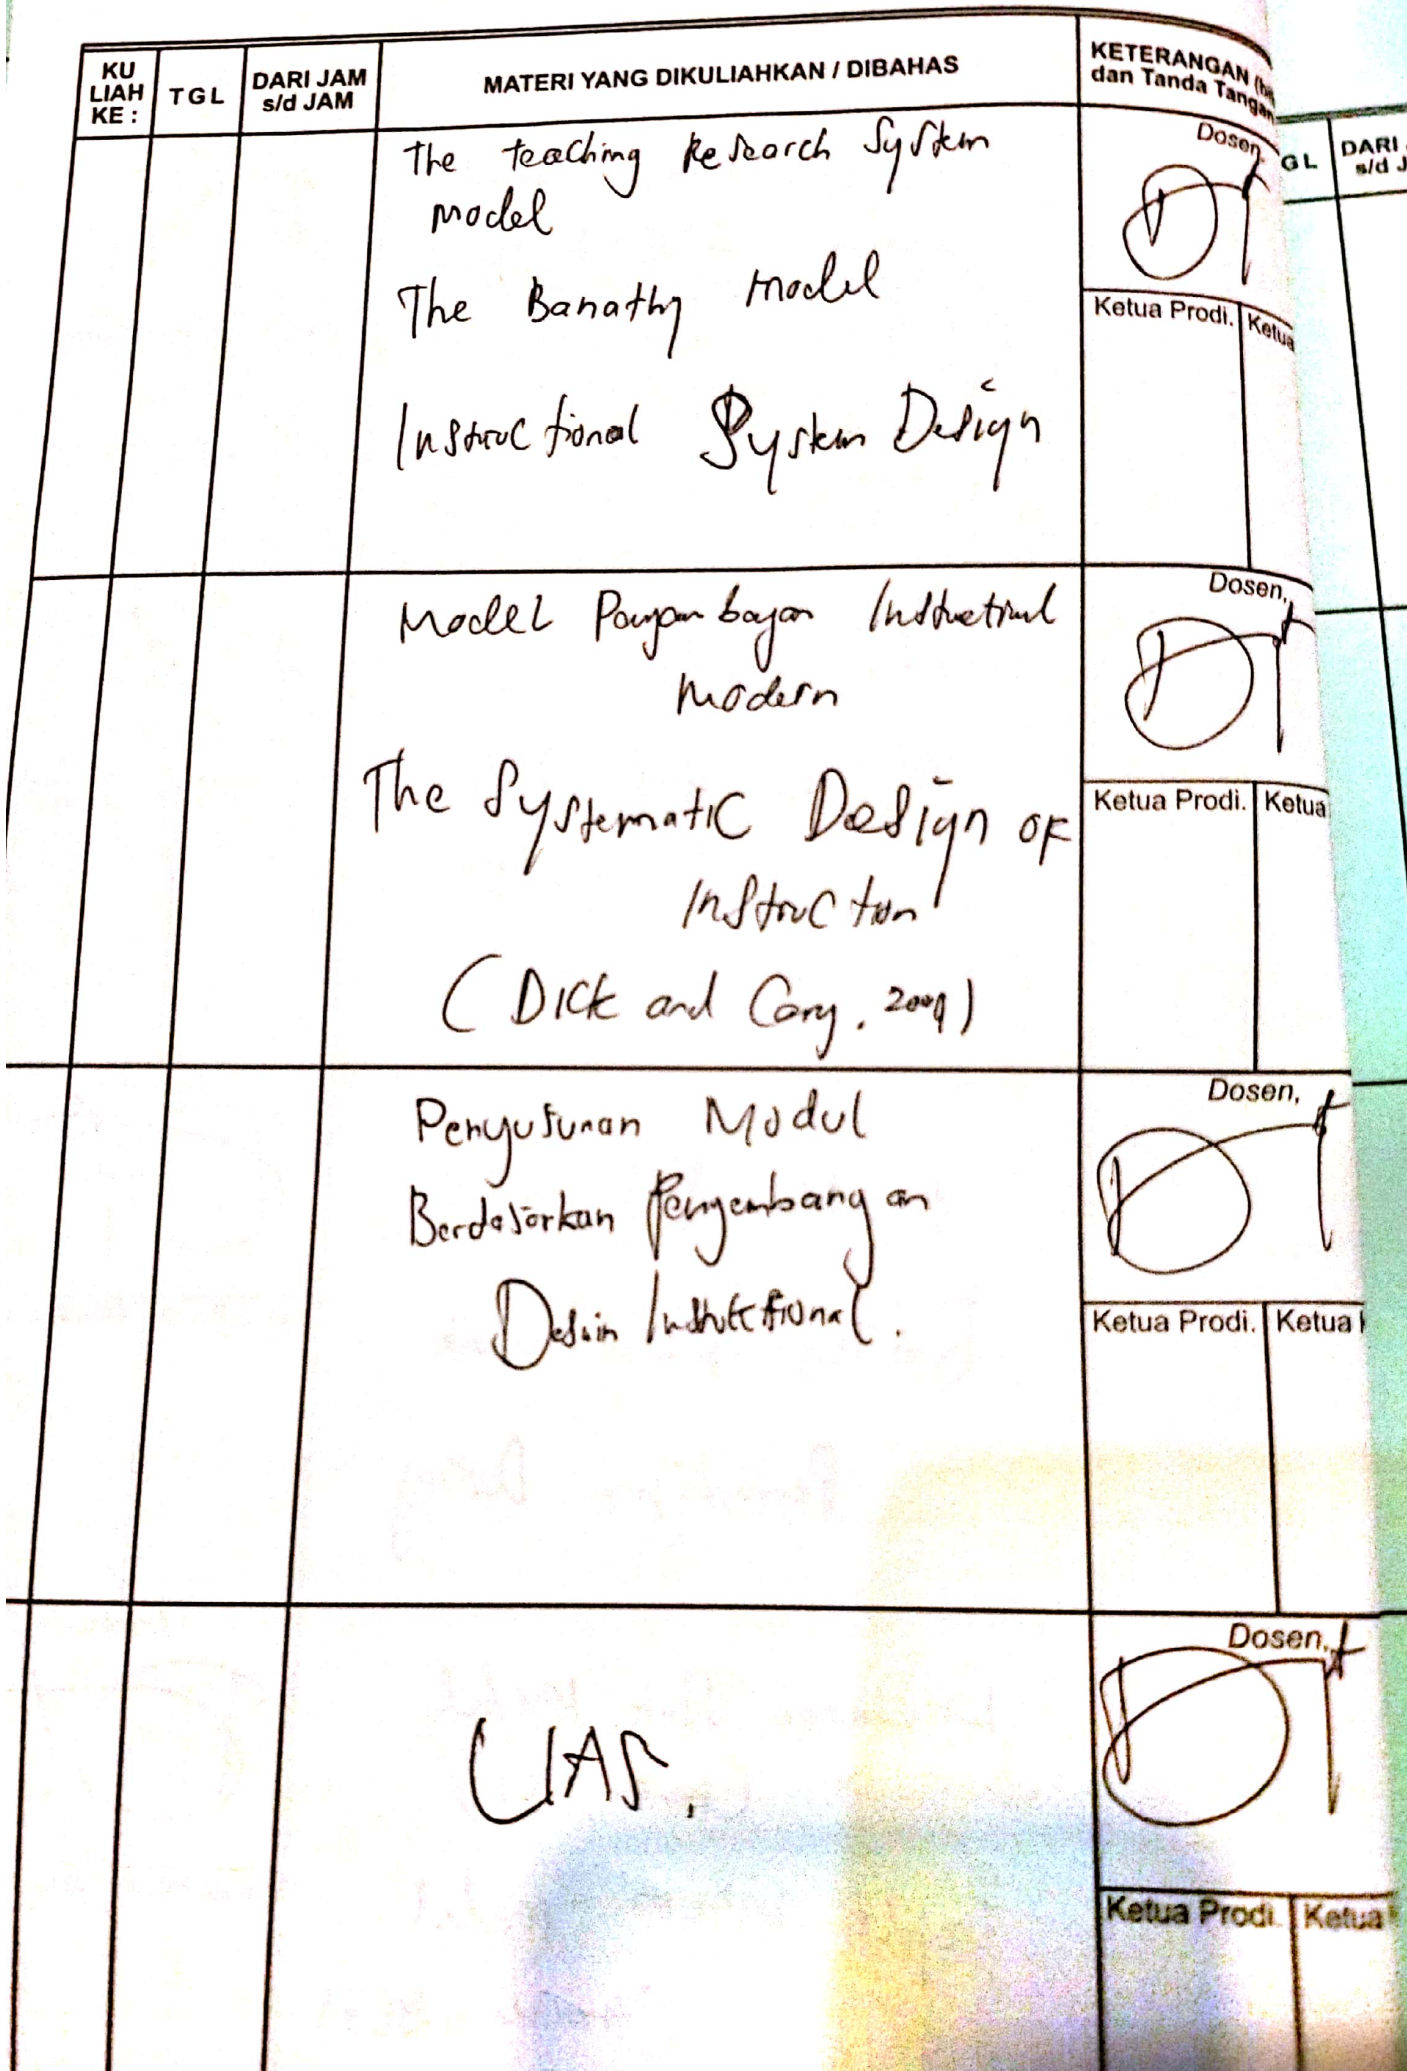 KU LIAH KE :
TGL
DARI JAM s/d JAM
MATERI YANG DIKULIAHKAN / DIBAHAS
KETERANGAN
dan Tanda Tangan
GL
DARI
s/d J
The teaching Research System
model
The Banathy model
Instructional System Design
Dosen,
Ketua Prodi.
Ketua
Model Instructional
Modern
The Systematic Design of
Instruction
(Dick and Cary, 2009)
Dosen,
Ketua Prodi.
Ketua
Penyusunan Modul
Berdasarkan Pengembangan
Desain Instruktional.
Dosen,
Ketua Prodi.
Ketua
UAS.
Dosen,
Ketua Prodi.
Ketua